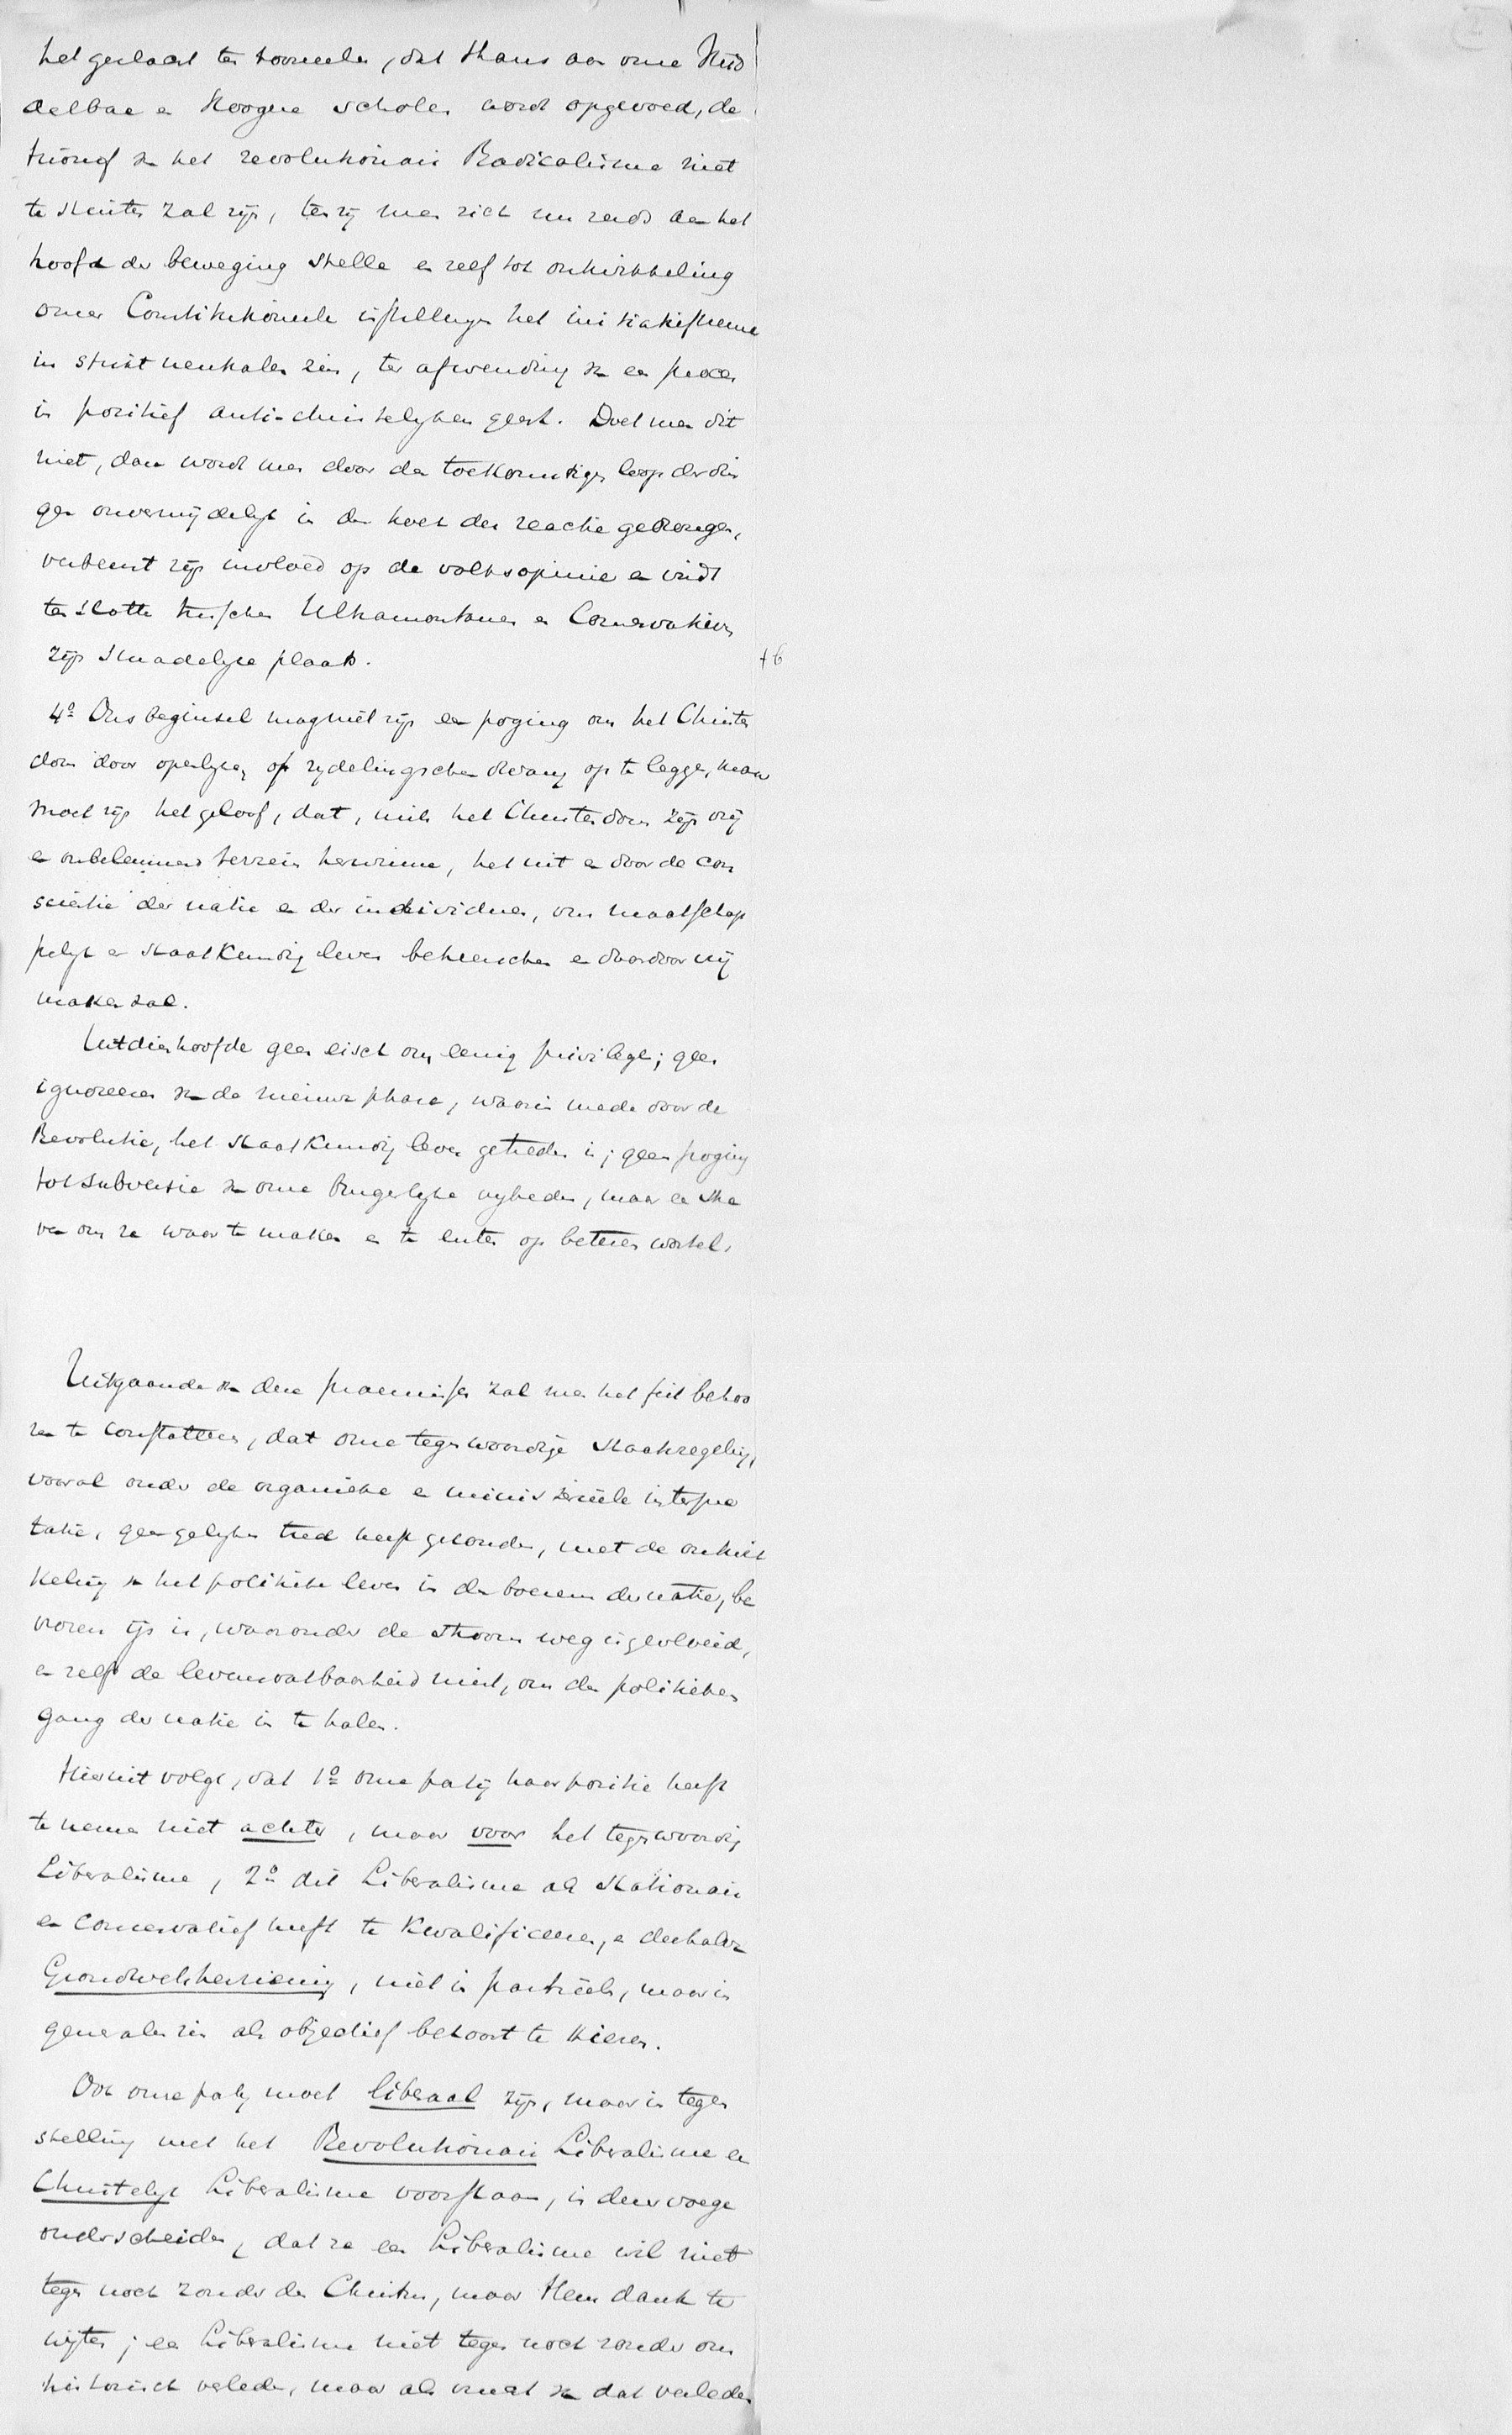 het geslacht ten tooneele, dat thans aan onze Mid
delbare en Hoogere scholen wordt opgevoed, de
triomf van het revolutionair Radicalisme niet
te stuiten zal zijn, tenzij men zich nu reeds aan het
hoofd der beweging stelle en zelf tot ontwikkeling
onzer Constitutioneele instellingen het initiatief neme
in strikt neutralen zin, ter afwending van een proces
in positief anti-christelijken geest. Doet men dit
niet, dan wordt men door den toekomstigen loop der din
gen onvermijdelijk in den hoek der reactie gedrongen,
verbeurt zijn invloed op de volksopinie en vindt
ten slotte tusschen Ultramontanen en Conservatieven
zijn smadelijke plaats.
+6
4º Ons beginsel mag niet zijn een poging om het Christen
dom door openlijken of zijdelingschen dwang op te leggen, maar
moet zijn het geloof, dat, mits het Christendom zijn vrij
en onbelemmerd terrein herwinne, het uit en door de con
sciëntie der natie en der individuen, ons maatschap
pelijk en staatkundig leven beheerschen en daardoor vrij
maken zal.
Uit dien hoofde geen eisch om eenig privilege; geen
ignoreeren van de nieuwe phase, waarin mede door de
Revolutie, het staatkundig leven getreden is; geen poging
tot subversie van onze burgerlijke vrijheden, maar een stre
ven om ze waar te maken en te enten op beteren wortel.
Uitgaande van deze praemissen zal men het feit behoo
ren te constateeren, dat onze tegenwoordige Staatsregeling,
vooral onder de organieke en ministerieele interpre
tatie, geen gelijken tred heeft gehouden, met de ontwik
keling van het politieke leven in den boezem der natie, be
vroren ijs is, waaronder de stroom weg is gevloeid,
en zelf de levensvatbaarheid mist, om den politieken
gang der natie in te halen.
Hieruit volgt, dat 1º onze partij haar positie heeft
te nemen niet achter, maar voor het tegenwoordig
Liberalisme, 2º dit Liberalisme als stationair
en conservatief heeft te kwalificeeren, en derhalve
Grondwetsherziening, niet in partieelen, maar in
generalen zin als objectief behoort te kiezen.
Ook onze partij moet liberaal zijn, maar in tegen
stelling met het Revolutionair Liberalisme een
Christelijk Liberalisme voorstaan, in dier voege
onderscheiden, dat ze een Liberalisme wil niet
tegen noch zonder den Christus, maar Hem dank te
wijten; een Liberalisme niet tegen noch zonder ons
historisch verleden, maar als vrucht van dat verleden